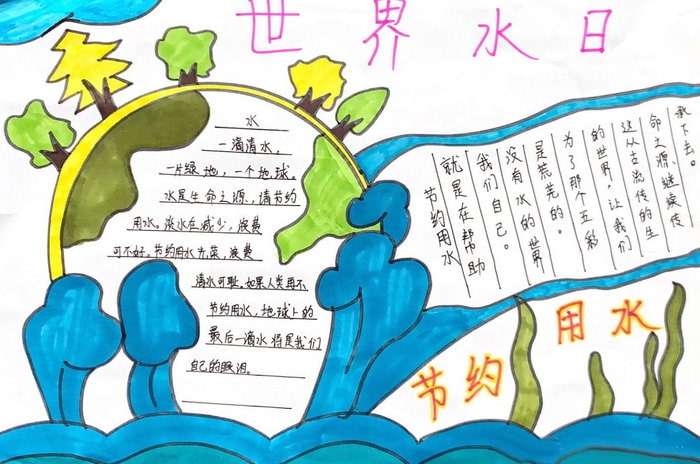 世界水日
水
一滴清水,
一片绿地,一个地球。
水是生命之源、请节约
用水。淡水在减少,浪费
可不好。节约用水光荣,浪费
清水可耻。如果人类再不
节约用水,地球上的
最后一滴水将是我们
自己的眼泪。
节约用水
就是在帮助
我们自己。
没有水的世界
是荒芜的。
为了那个五彩
的世界,让我们
这从古流传的生
命之源、继续传
承下去。
节约用水